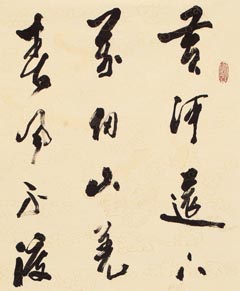 黄河遠上
萬仞山羌
春風不渡